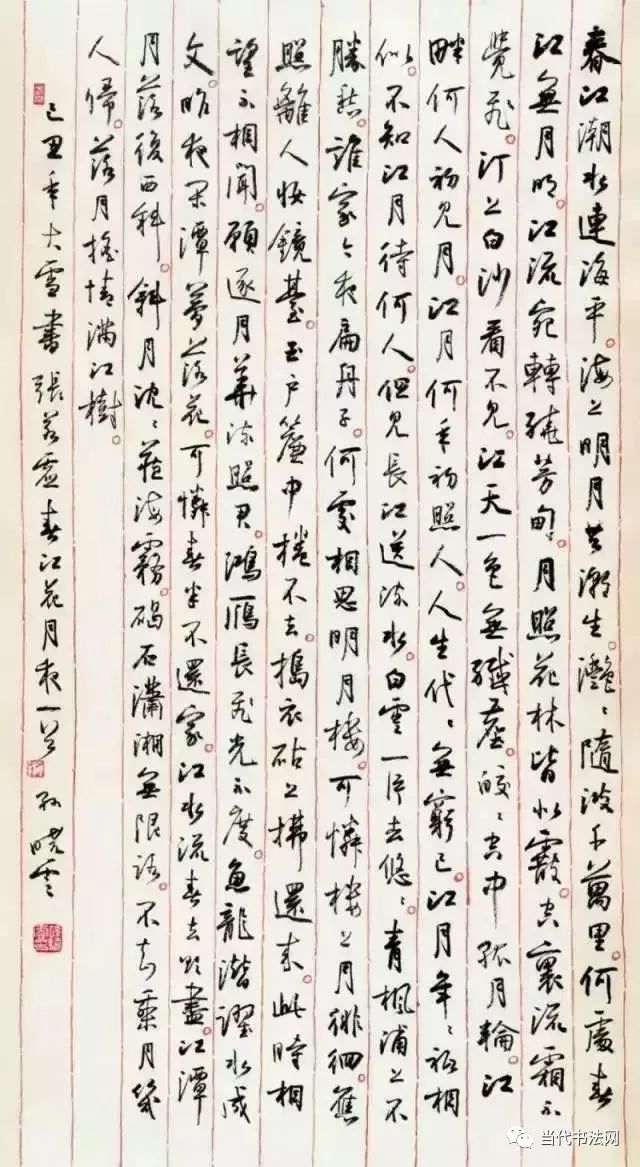 春江潮水連海平。海上明月共潮生。灩々隨波千萬里。何處春
江無月明。江流宛轉繞芳甸。月照花林皆似霰。空裏流霜不
覺飛。汀上白沙看不見。江天一色無纖塵。皎々空中孤月輪。江
畔何人初見月。江月何年初照人。人生代々無窮已。江月年々祇相
似。不知江月待何人。但見長江送流水。白雲一片去悠々。青楓浦上不
勝愁。誰家今夜扁舟子。何處相思明月樓。可憐樓上月徘徊。應
照離人妝鏡臺。玉戶簾中捲不去。搗衣砧上拂還來。此時相
望不相聞。願逐月華流照君。鴻雁長飛光不度。魚龍潛躍水成
文。昨夜閑潭夢落花。可憐春半不還家。江水流春去欲盡。江潭
月落復西斜。斜月沈々藏海霧。碣石瀟湘無限路。不知乘月幾
人歸。落月搖情滿江樹。
己丑年大雪書張若虛春江花月夜一首 孫曉雲
当代书法网